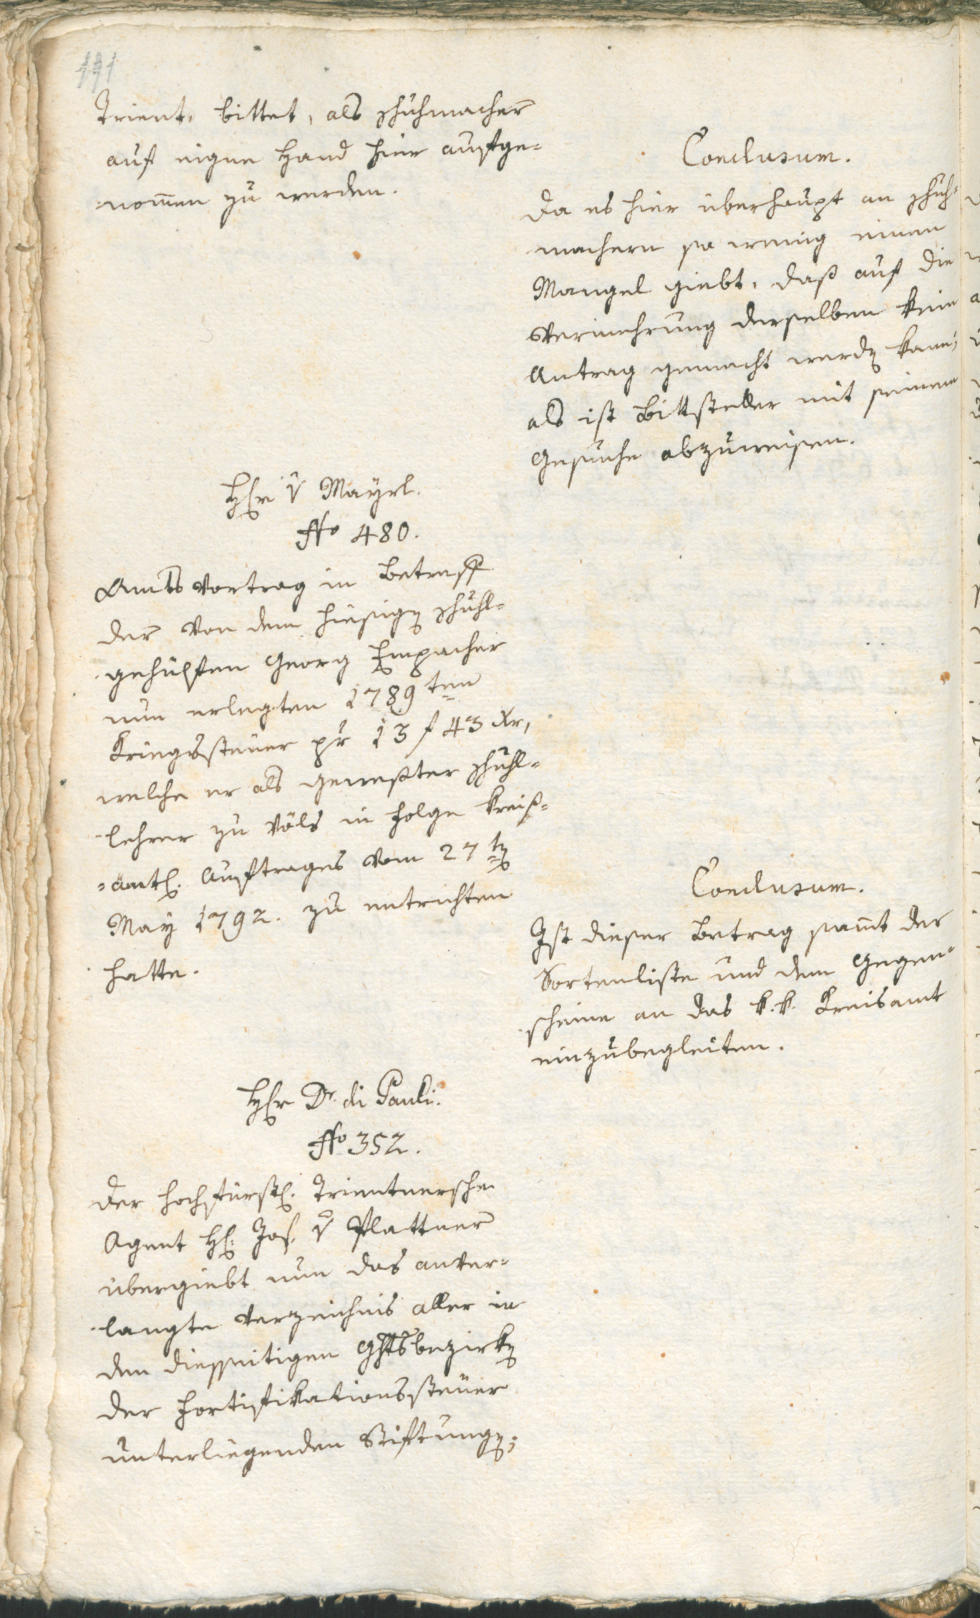 191
Trient, bittet, als Schuhmacher
auf eigne Hand hier aufge-
nom̄en zu werden.
Conclusum.
Da es hier überhaupt an Schuh-
machern so wenig einen
Mangel giebt, daß auf die
Vermehrung derselben kein
Antrag gemacht werdē kann,
als ist Bittsteller mit seinem
Gesuche abzuweisen.
Hr v Mayrl.
No 480.
Amts Vortrag in Betreff
der von dem hiesigē Schuhl-
gehülfen Georg Empacher
nun erlegten 1789ten
Kriegssteuer pr 13 f 43 Xr,
welche er als gewester Schuhl-
lehrer zu Völs in Folge Kreis-
amtl. Auftrages vom 27tē
May 1792. zu entrichten
hatte.
Conclusum.
Ist dieser Betrag sam̄t der
Sortenliste und dem Gegen-
scheine an das k.k. Kreisamt
einzubegleiten.
Hr Dr. di Pauli.
No 352.
Der hochfürstl. Trientnersche
Agent H. Jos. v Plattner
übergiebt nun das anver-
langte Verzeichnis aller in
den diesseitigen Ghtsbezirkē
der Fortifikationssteuer
unterliegenden Stiftungē;